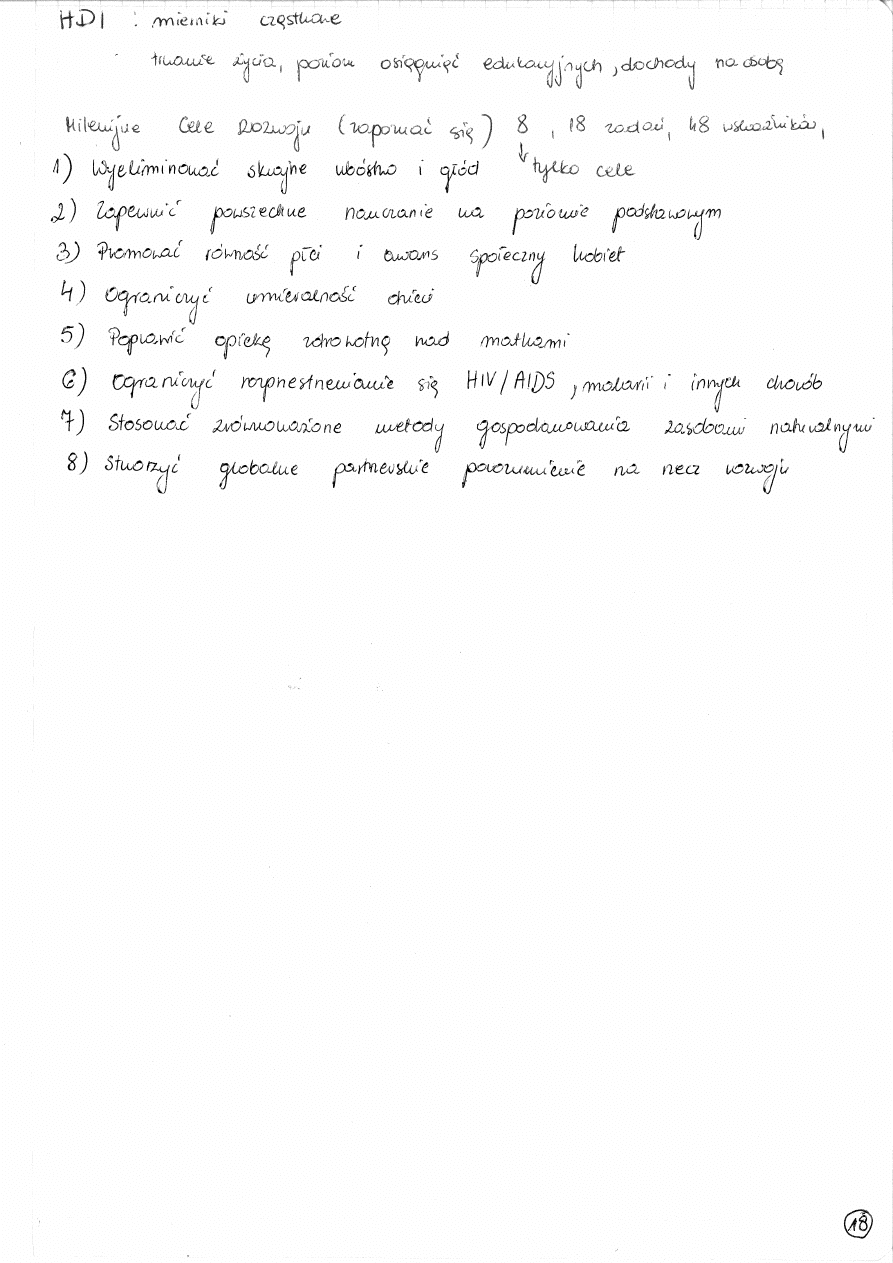 HDI : mierniki cząstkowe
trwanie życia, poziom osiągnięć edukacyjnych, dochody na osobę
Milenijne Cele Rozwoju (zapoznać się) 8 , 18 zadań, 48 wskaźników,
↓ tylko cele
1) Wyeliminować skrajne ubóstwo i głód
2) Zapewnić powszechne nauczanie na poziomie podstawowym
3) Promować równość płci i awans społeczny kobiet
4) Ograniczyć umieralność dzieci
5) Poprawić opiekę zdrowotną nad matkami
6) Ograniczyć rozprzestrzenianie się HIV/AIDS, malarii i innych chorób
7) Stosować zrównoważone metody gospodarowania zasobami naturalnymi
8) Stworzyć globalne partnerskie porozumienie na rzecz rozwoju
18